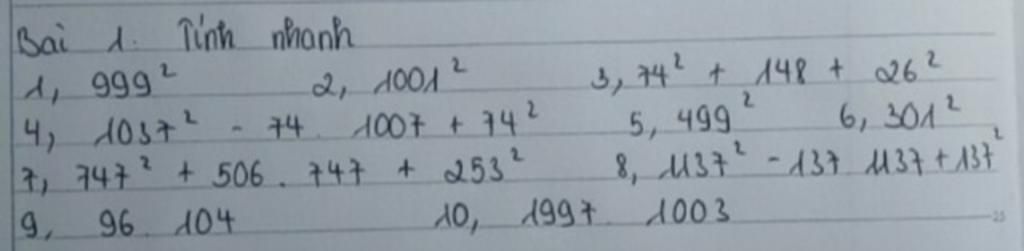 Bài 1. Tính nhanh
1, 999² 2, 1001² 3, 74² + 148 + 26²
4, 1037² - 74 1007 + 74² 5, 499² 6, 301²
7, 747² + 506 . 747 + 253² 8, 1137² - 137 1137 + 137²
9, 96 104 10, 1997 1003